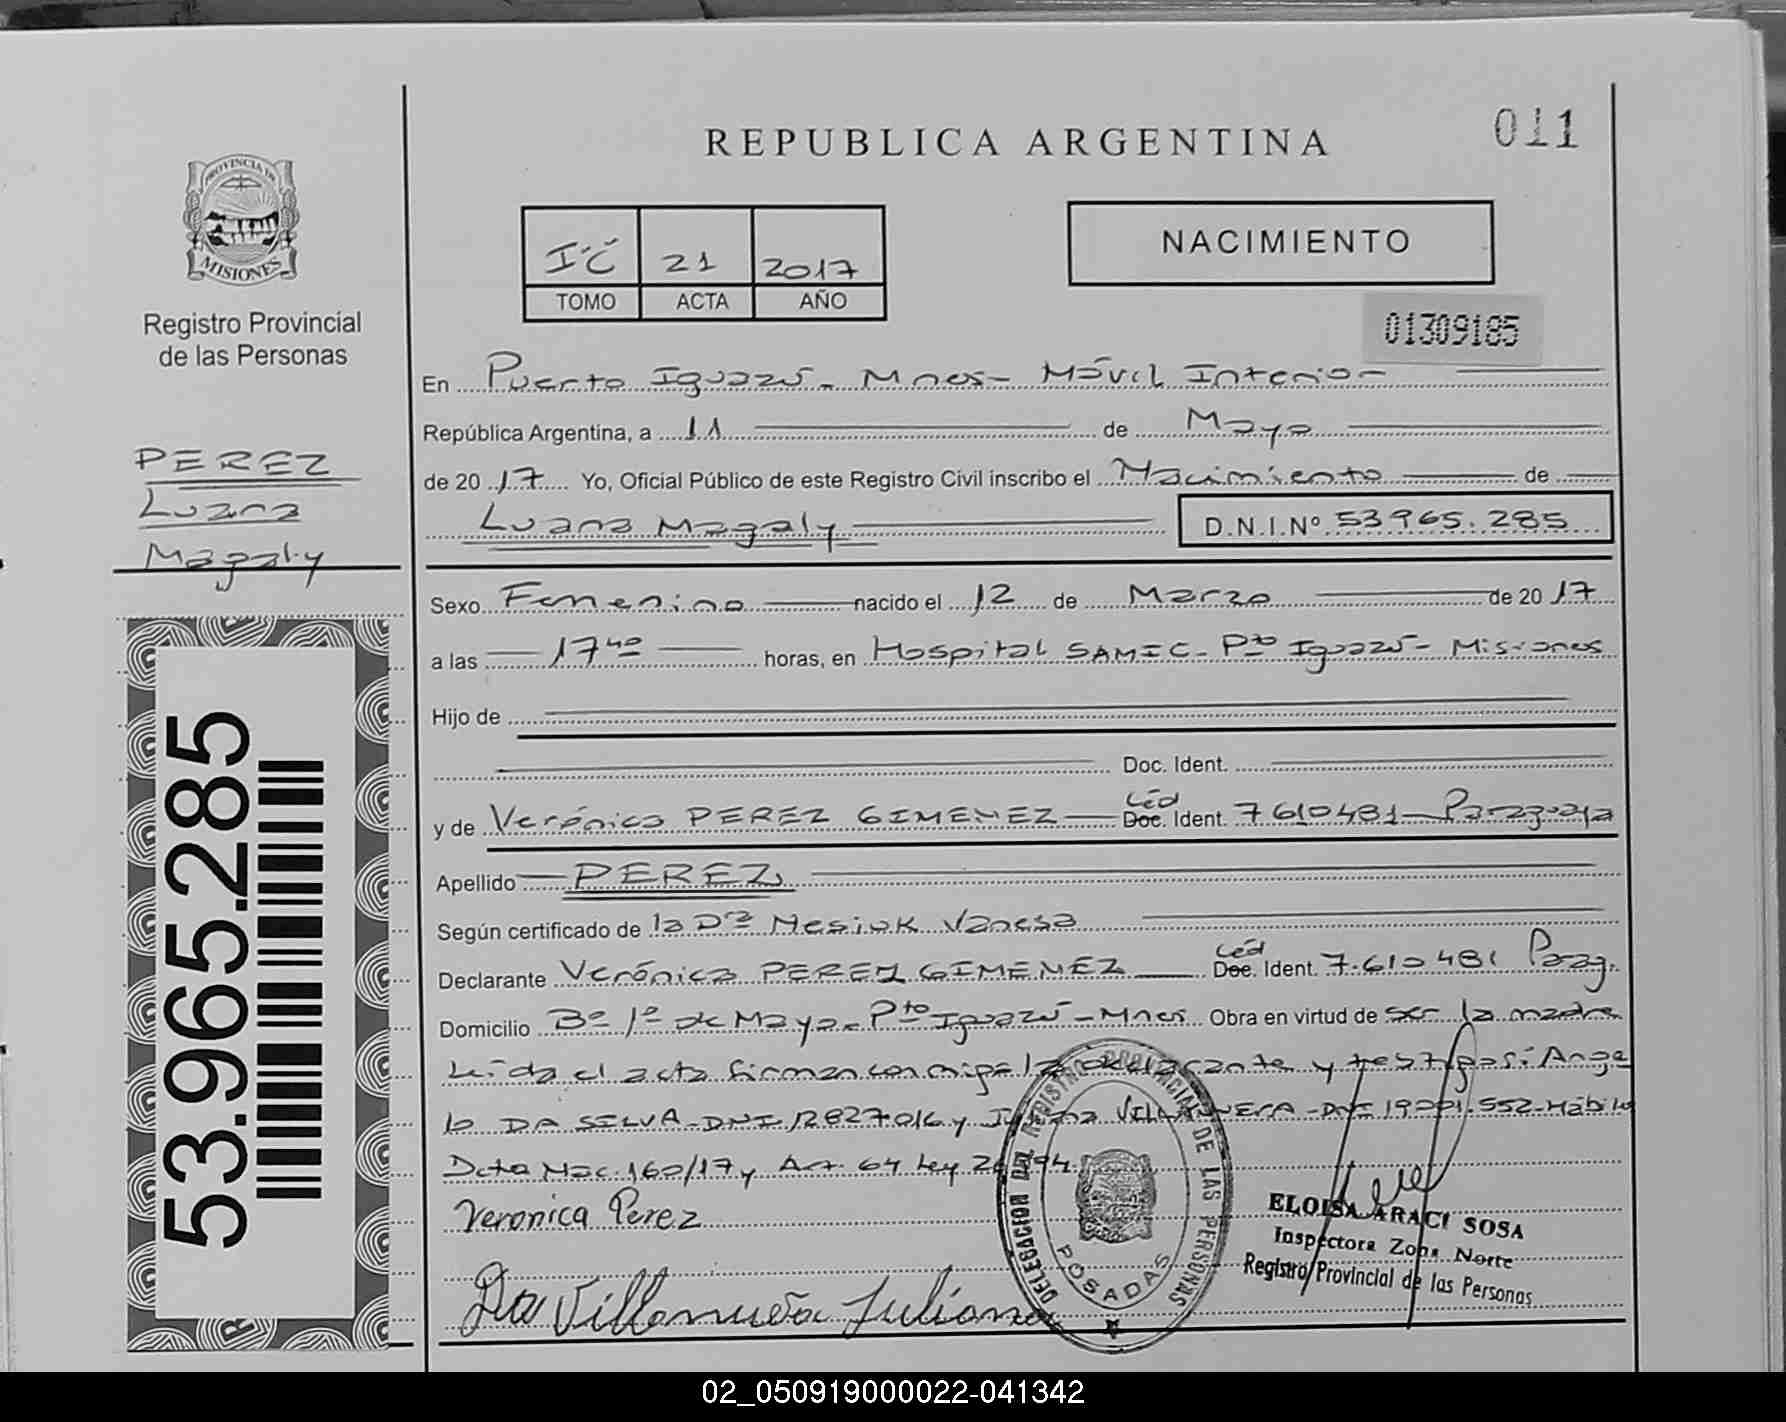 REPUBLICA ARGENTINA
011
PROVINCIA DE
MISIONES
Registro Provincial
de las Personas
I"C" 21 2017
TOMO ACTA AÑO
NACIMIENTO
01309185
PEREZ
Luana
Magaly
53.965.285
En Puerto Iguazú - Mnes - Móvil Interior
República Argentina, a 11 de Mayo
de 2017 Yo, Oficial Público de este Registro Civil inscribo el Nacimiento de
Luana Magaly D.N.I.Nº 53965.285
Sexo Femenino nacido el 12 de Marzo de 2017
a las 17 40 horas, en Hospital SAMIC - Pto Iguazú - Misiones
Hijo de
Doc. Ident.
y de Verónica PEREZ GIMENEZ Céd Doc. Ident. 7610481 Paraguaya
Apellido PEREZ
Según certificado de la Dra Vanesa
Declarante Verónica PEREZ GIMENEZ Céd Doc. Ident. 7.610481 Parag.
Domicilio Bº 1º de Mayo - Pto Iguazú - Mnes Obra en virtud de ser la madre
Leída el acta firman conmigo la declarante y testigos: Ange
la DA SILVA - DNI 12827016 y VILLANUEVA - DNI 552 - Habilit
Dcto Nac. 160/17 y Art. 64 Ley
Veronica Perez
Villanueva Juliana
DELEGACION DEL REGISTRO PROVINCIAL DE LAS PERSONAS
POSADAS
ELOISA ARACI SOSA
Inspectora Zona Norte
Registro Provincial de las Personas
02_050919000022-041342